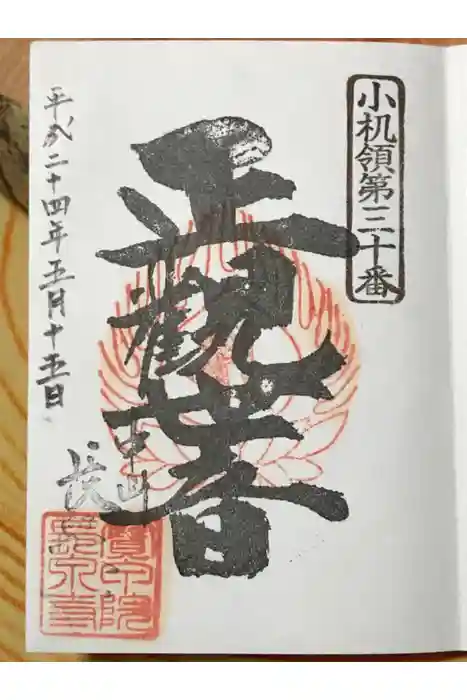 小机領第三十番
正觀音
中山
平成二十四年五月十五日